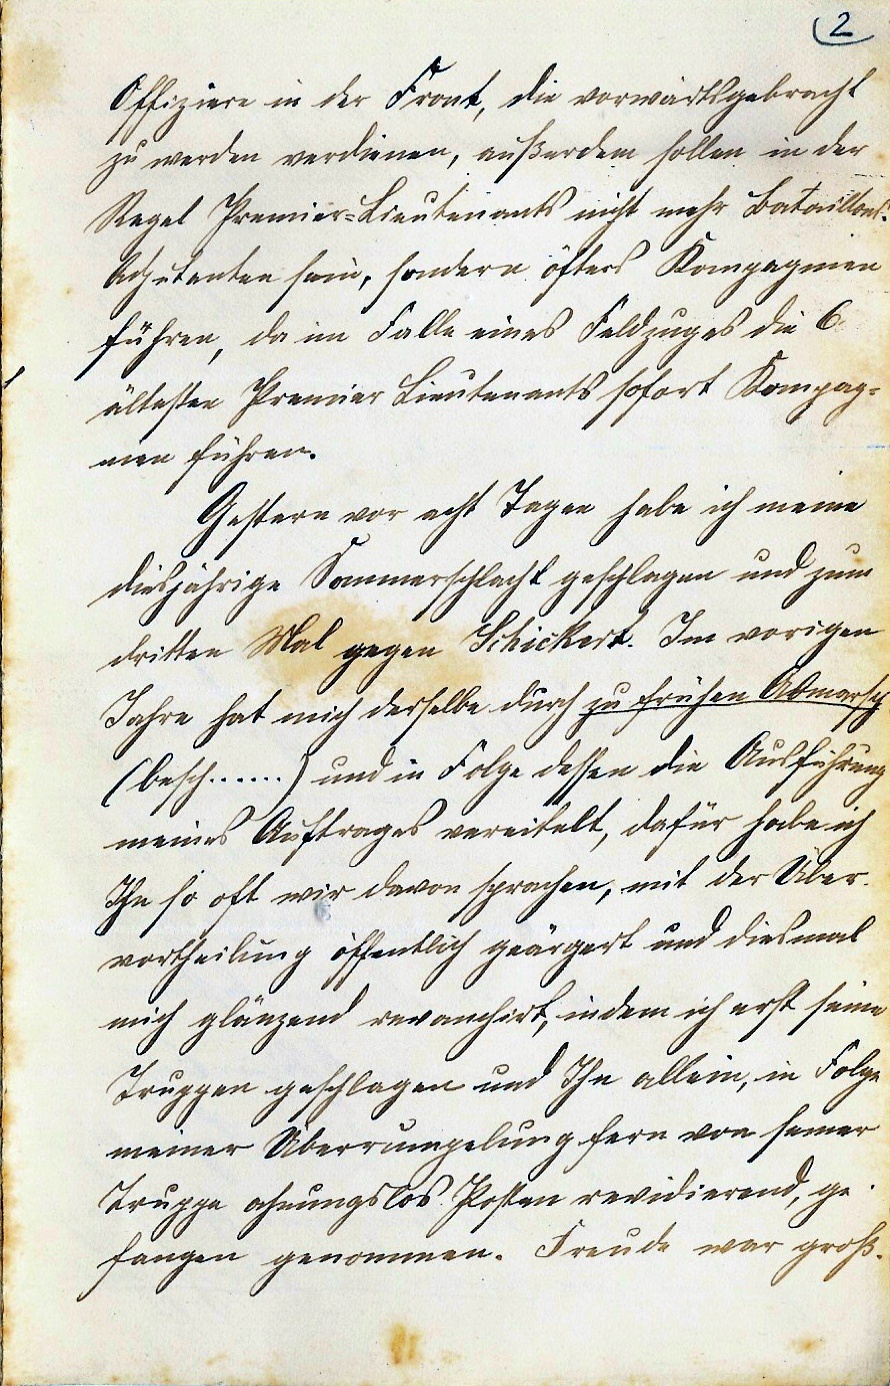 2
Offiziere in der Front, die vorwärtsgebracht
zu werden verdienen, außerdem sollen in der
Regel Premier=Lieutenants nicht mehr Bataillons-
Adjutanten sein, sondern öfters Kompagnien
führen, da im Falle eines Feldzuges die 6
ältesten Premier Lieutenants sofort Kompag=
nien führen.
Gestern vor acht Tagen habe ich meine
diesjährige Sommerschlacht geschlagen und zum
dritten Mal gegen Schickert. Im vorigen
Jahre hat mich derselbe durch zu frühen Abmarsch
(besch......) und in Folge dessen die Ausführung
meines Auftrages vereitelt, dafür habe ich
Ihn so oft wir davon sprachen, mit der Über-
vortheilung öffentlich geärgert und diesmal
mich glänzend revanchirt, indem ich erst seine
Truppen geschlagen und Ihn allein, in Folge
meiner Überrumpelung fern von seiner
Truppe ahnungslos Posten revidierend, ge-
fangen genommen. Freude war groß.